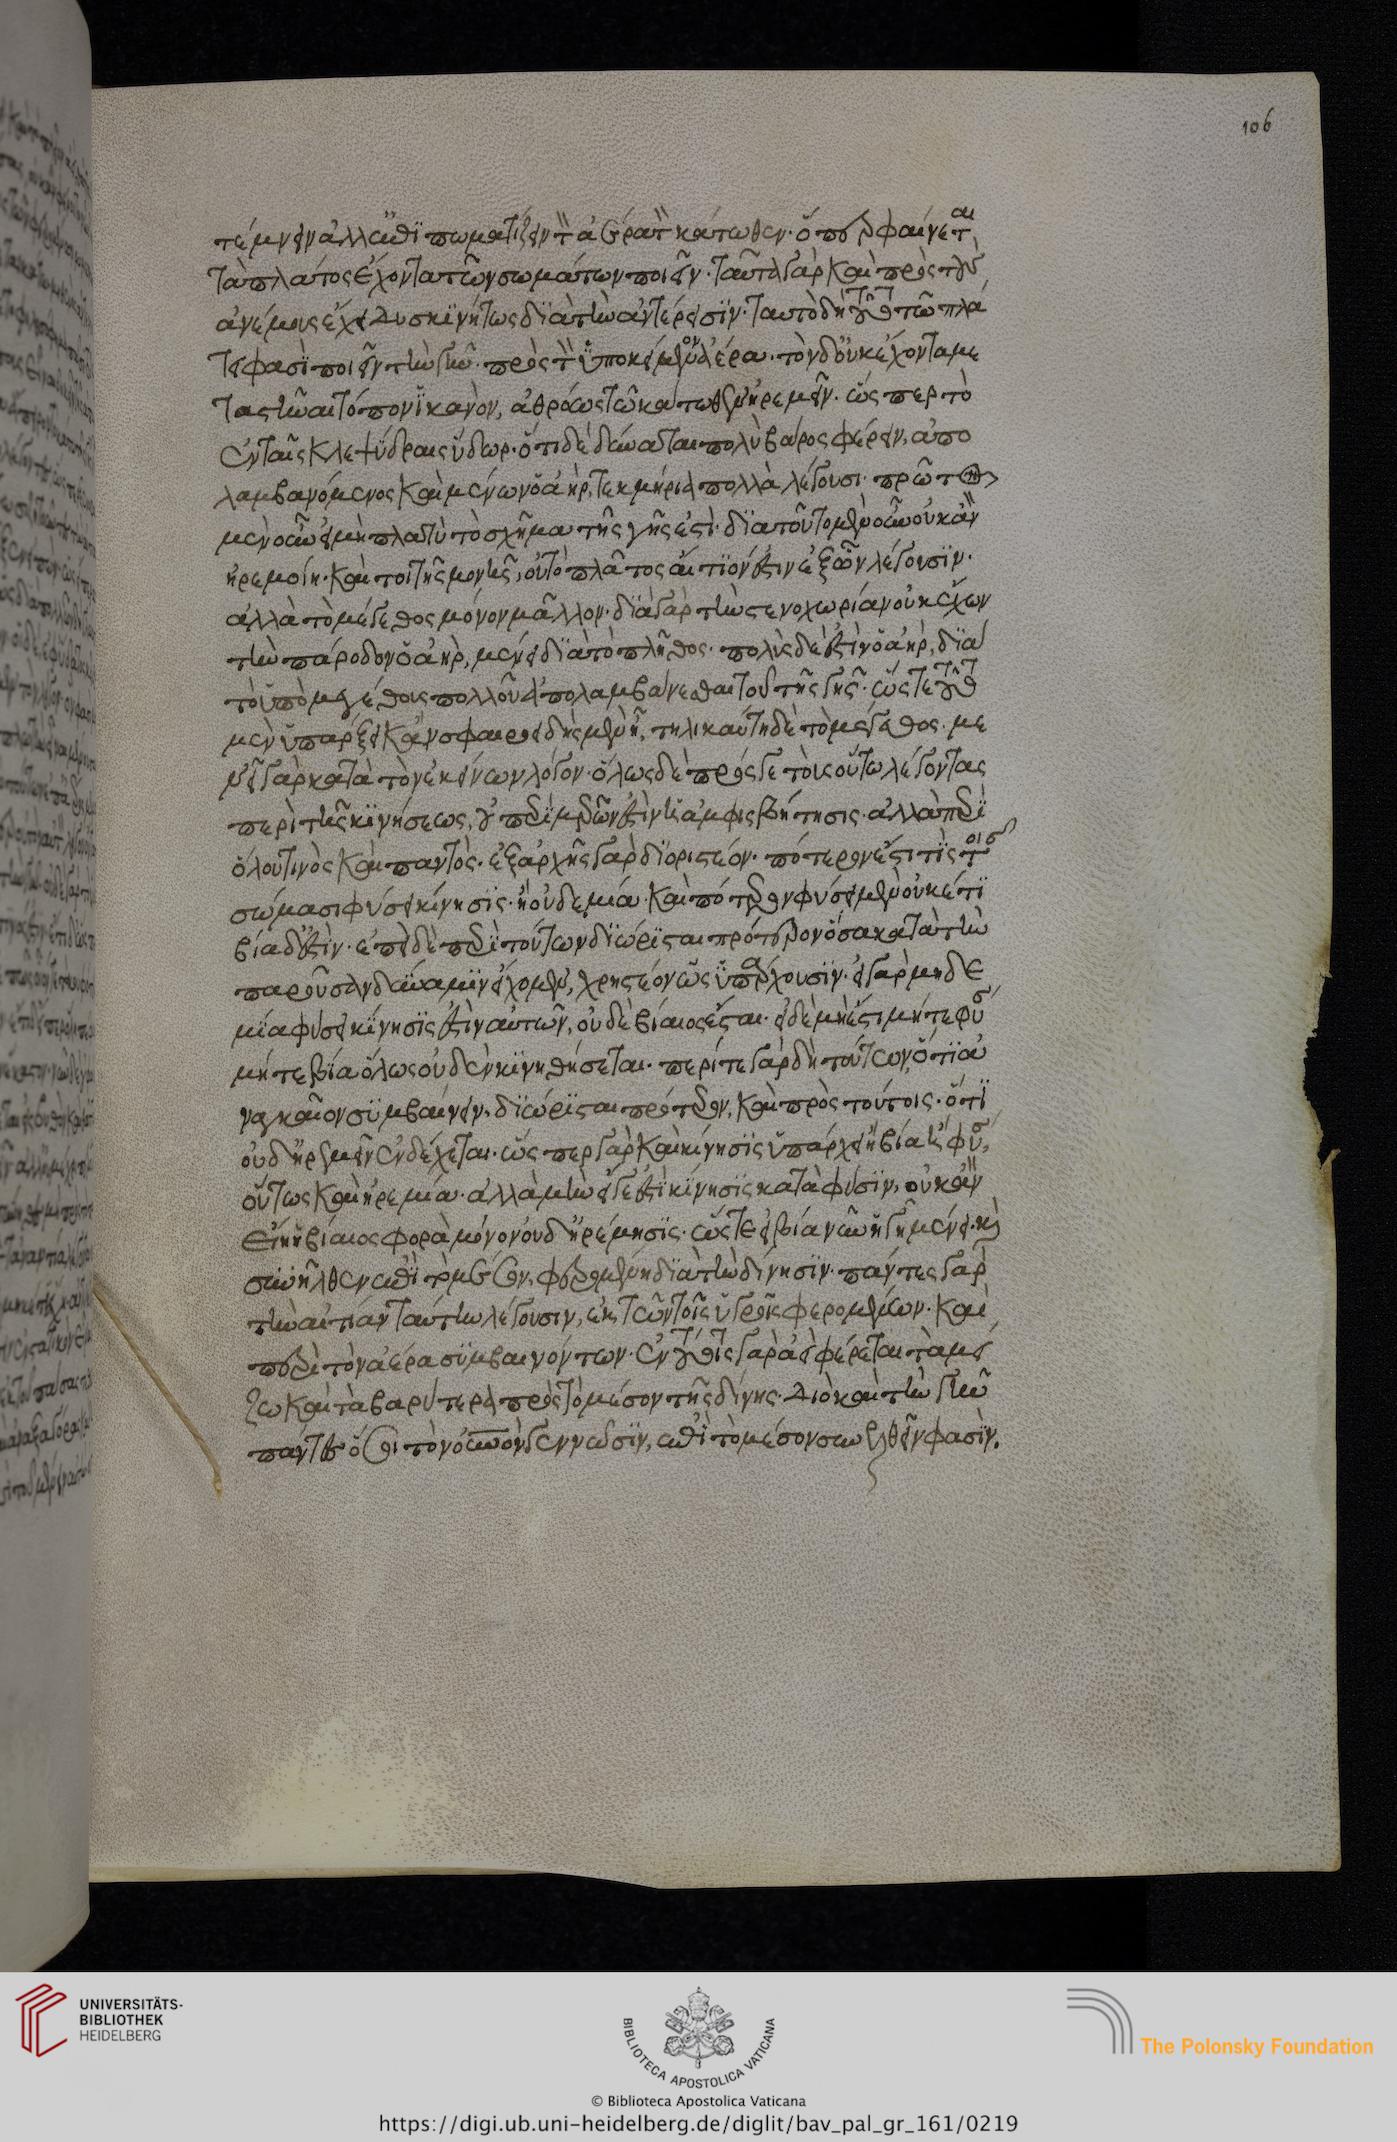 τέμνειν ἀλλ' ἐπιπωματίζειν τὸν ἀέρα τὸν κάτωθεν· ὅπερ φαίνεται
τὰ πλάτος ἔχοντα τῶν σωμάτων ποιεῖν· ταῦτα γὰρ καὶ πρὸς τοὺς
ἀνέμους ἔχει δυσκινήτως διὰ τὴν ἀντέρεισιν· ταυτὸ δὴ τοῦτο τῶ πλά
τει φασὶ ποιεῖν τὴν γῆν πρὸς τὸν ὑποκείμενον ἀέρα· τὸν δ' οὐκ ἔχοντα με
ταστῆναι τόπον ἱκανὸν, ἀθρόως τῶ κάτωθεν ἠρεμεῖν· ὥσπερ τὸ
ἐν ταῖς κλεψύδραις ὕδωρ· ὅτι δὲ δύναται πολὺ βάρος φέρειν, ἀπο
λαμβανόμενος καὶ μένων ὁ ἀὴρ, τεκμήρια πολλὰ λέγουσι· πρῶτον
μὲν οὖν εἰ μὴ πλατὺ τὸ σχῆμα τῆς γῆς ἐστὶ· διὰ τοῦτο μὲν οὖν οὐκ ἂν
ἠρεμοίη· καὶ τοι τῆς μονῆς, οὐ τὸ πλάτος αἴτιόν ἐστιν ἐξ ὧν λέγουσιν·
ἀλλὰ τὸ μέγεθος μόνον μᾶλλον· διὰ γὰρ τὴν στενοχωρίαν οὐκ ἔχων
τὴν πάροδον ὁ ἀὴρ, μένει διὰ τὸ πλῆθος· πολὺς δέ ἐστὶν ὁ ἀὴρ, διὰ
τὸ ὑπὸ μεγέθους πολλοῦ ἀπολαμβάνεσθαι τοῦ τῆς γῆς· ὥστε τοῦτο
μὲν ὑπάρξει κἂν σφαιροειδὴς μὲν ἦ, τηλικαύτη δὲ τὸ μέγεθος· με
νεῖ γὰρ κατὰ τὸν ἐκείνων λόγον· ὅλως δὲ πρός γε τοὺς οὕτω λέγοντας
περὶ τῆς κινήσεως, οὐ περὶ μορίων ἐστὶν ἡ ἀμφισβήτησις· ἀλλὰ περὶ
ὅλου τινὸς καὶ παντὸς· ἐξ ἀρχῆς γὰρ διοριστέον· πότερον ἔστι τίς τοῖς
σώμασι φύσει κίνησις· ἢ οὐδεμία· καὶ πότερον φύσει μὲν οὐκ ἔστι
βία δ' ἐστὶν· ἐπεὶ δὲ περὶ τούτων διώρισται πρότερον ὅσα κατὰ τὴν
παροῦσαν δύναμιν εἴχομεν, χρηστέον ὡς ὑπάρχουσιν· εἰ γὰρ μηδε
μία φύσει κίνησις ἐστὶν αὐτῶν, οὐδὲ βίαιος ἔσται· εἰ δὲ μὴ ἔστι μήτε φύσει
μήτε βία ὅλως οὐδὲν κινηθήσεται· περί τε γὰρ δὴ τούτων, ὅτι ἀ
ναγκαῖον συμβαίνειν, διώρισται πρότερον, καὶ πρὸς τούτοις· ὅτι
οὐδ' ἠρεμεῖν ἐνδέχεται· ὥσπερ γὰρ καὶ κίνησις ὑπάρχει ἢ βία ἢ φύσει,
οὕτως καὶ ἠρεμία· ἀλλὰ μὴν εἴ γε ἐστὶ κίνησις κατὰ φύσιν, οὐκ ἂν
εἴη ἡ βίαιος φορὰ μόνον οὐδ' ἠρέμησις· ὥστε εἰ βία νῦν ἡ γῆ μένει· καὶ
συνῆλθεν ἐπὶ τὸ μέσον, φερομένη διὰ τὴν δίνησιν· πάντες γὰρ
τὴν αἰτίαν ταύτην λέγουσιν, ἐκ τῶν τοῖς ὑγροῖς φερομένων· καὶ
περὶ τὸν ἀέρα συμβαινόντων· ἐν τούτοις γὰρ ἀεὶ φέρεται τὰ μεί
ζω καὶ τὰ βαρύτερα πρὸς τὸ μέσον τῆς δίνης· διὸ καὶ τὴν γῆν
πάντες ὅσοι τὸν οὐρανὸν γεννῶσιν, ἐπὶ τὸ μέσον συνελθεῖν φασίν,
106
UNIVERSITÄTS-
BIBLIOTHEK
HEIDELBERG
BIBLIOTECA APOSTOLICA VATICANA
The Polonsky Foundation
© Biblioteca Apostolica Vaticana
https://digi.ub.uni-heidelberg.de/diglit/bav_pal_gr_161/0219